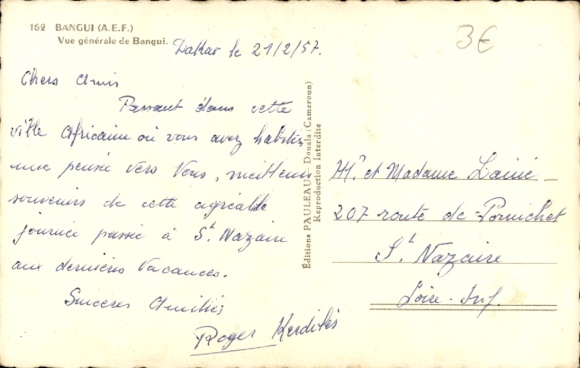 162 BANGUI (A.E.F.)
Vue générale de Bangui.
3€
Dakar le 21/2/57.
Chers Amis
Passant dans cette
ville Africaine où vous avez habités
une pensée vers Vous, meilleurs
souvenirs de cette agréable
journée passée à St. Nazaire
aux dernières Vacances.
Sincères Amitiés
Roger
Éditions PAULEAU, Douala (Cameroun)
Reproduction Interdite
Mr et Madame Lainé
207 route de Pornichet
St Nazaire
Loire-Inf.